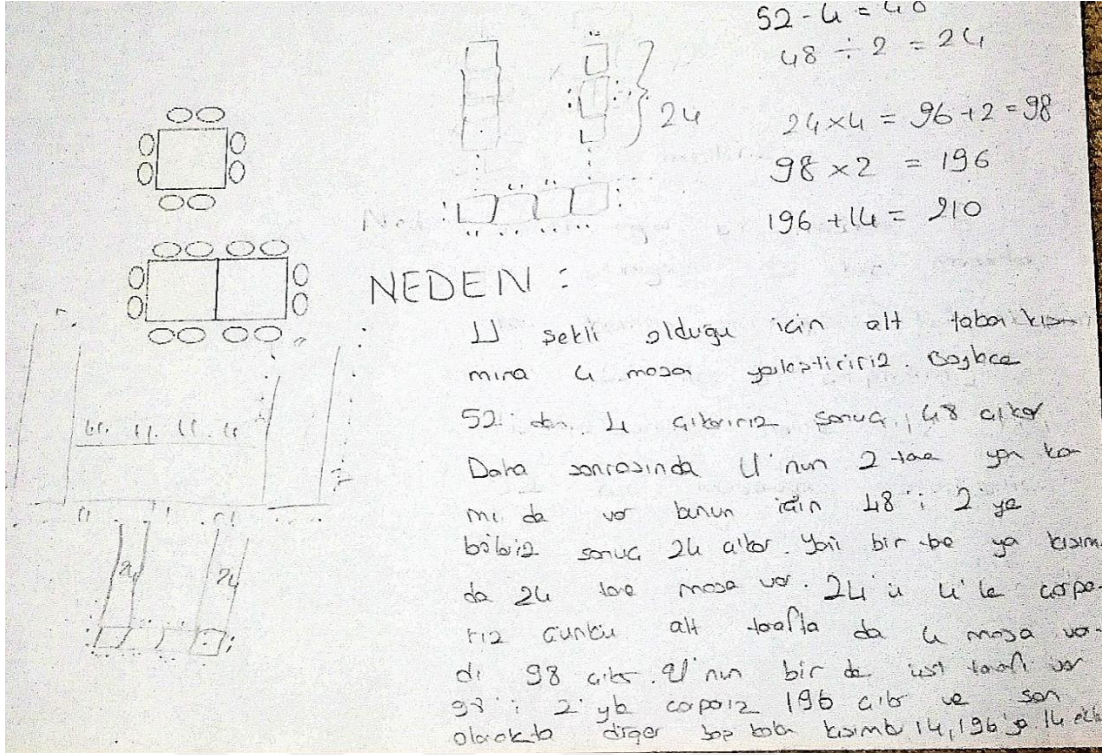 52-4 = 48
48 ÷ 2 = 24
24
24×4 = 96+2=98
98 ×2 = 196
196 +14 = 210
NEDEN :
U şekli olduğu için alt taban
mına 4 masa yerleştiririz. Böylece
52 den 4 çıkarırız sonuç 48 çıkar
Daha sonrasında U'nun 2 tane yan
mı da var bunun için 48'i 2 ye
böleriz sonuç 24 çıkar. Yani bir
da 24 tane masa var. 24'ü 4'le çarpa-
rız çünkü alt tarafta da 4 masa var-
dı 98 çıkar. U'nun bir de üst tarafı var
98'i 2'yle çarparız 196 çıkar ve son
olarakta diğer 14, 196'ya 14
24 24